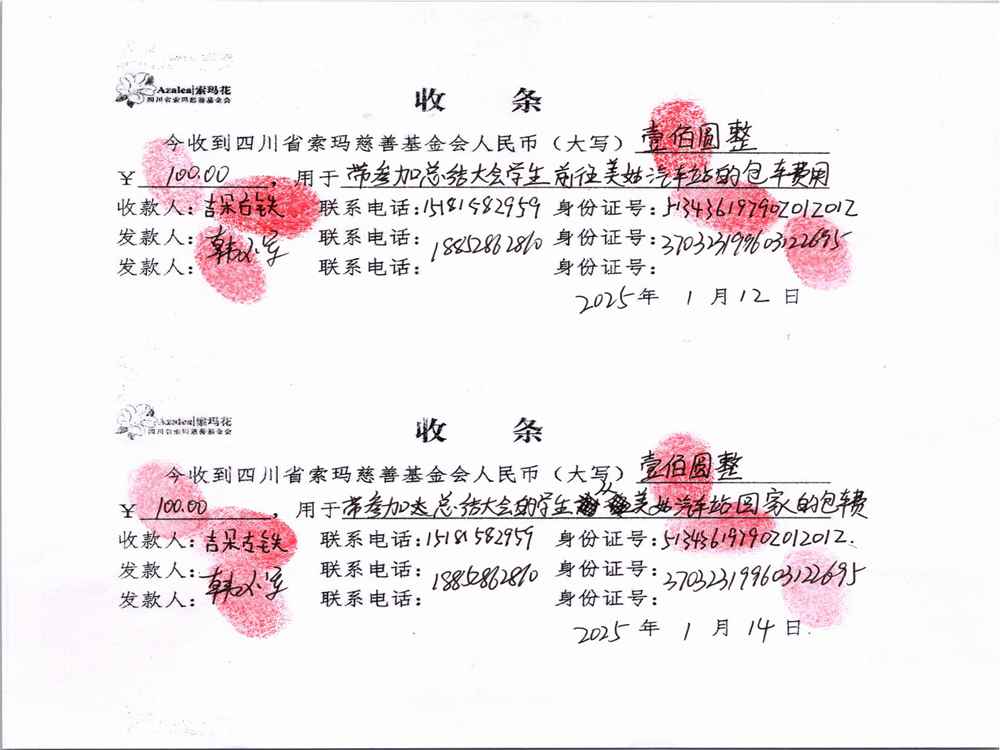 Azalea|索玛花
四川省索玛慈善基金会
收 条
今收到四川省索玛慈善基金会人民币（大写）壹佰圆整
¥ 100.00 ，用于 带参加总结大会学生前往美姑汽车站的包车费用
收款人：吉呆古铁 联系电话：15181582959 身份证号：513436197902012012
发款人：韩小军 联系电话：18852862810 身份证号：370323199603122695
发款人： 联系电话： 身份证号：
2025年 1 月 12 日
Azalea|索玛花
四川省索玛慈善基金会
收 条
今收到四川省索玛慈善基金会人民币（大写）壹佰圆整
¥ 100.00 ，用于 带参加总结大会的学生从美姑汽车站回家的包车费
收款人：吉呆古铁 联系电话：15181582959 身份证号：513436197902012012.
发款人：韩小军 联系电话：18852862810 身份证号：370323199603122695
发款人： 联系电话： 身份证号：
2025 年 1 月 14 日.